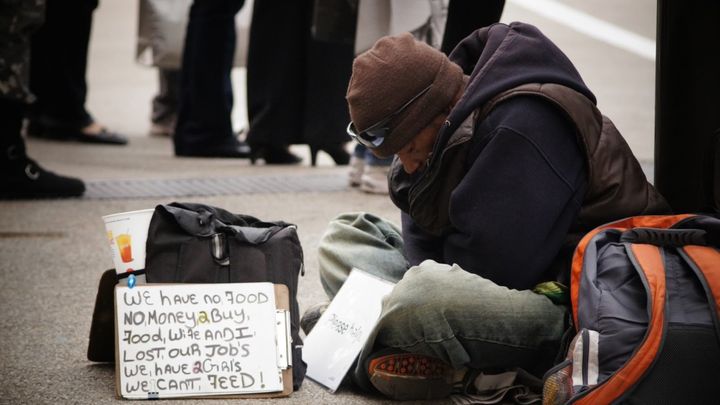 WE HAVE NO FOOD
NO MONEY 2 BUY,
FOOD, WIFE AND I
LOST OUR JOB'S
WE HAVE 2 GIRLS
WE CAN'T FEED!
Please help